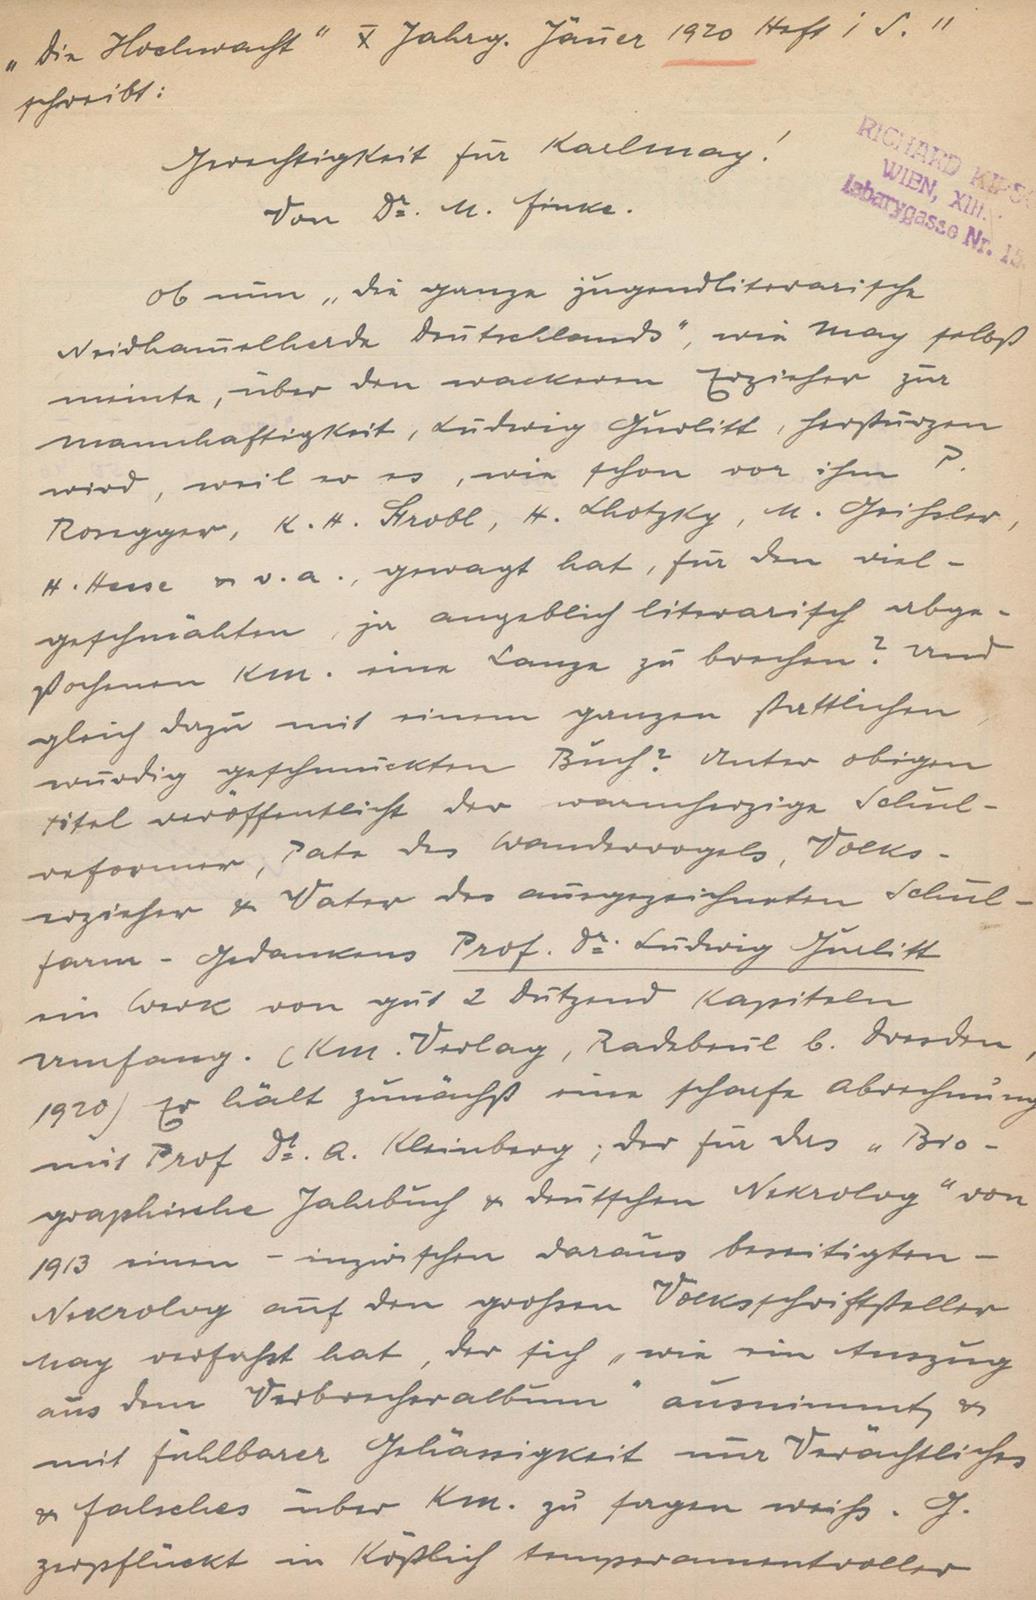 „Die Hochwacht" X Jahrg. Jäner 1920 Heft 1 S. 11
schreibt:
RICHARD
WIEN, XIII.
Labarygasse Nr. 15
Gerechtigkeit für Karl May!
Von Dr. M. Finke.
Ob nun „die ganze jugendliterarische
Neidhamelherde Deutschlands", wie May selbst
meinte, über den wackeren Erzieher zur
Mannhaftigkeit, Ludwig Gurlitt, herstürzen
wird, weil er es, wie schon vor ihm P.
Rosegger, K. H. Strobl, H. Lhotzky, M. Geißler,
H. Hesse & v. a., gewagt hat, für den viel-
geschmähten, ja angeblich literarisch abge-
stochenen KM. eine Lanze zu brechen? Und
gleich dazu mit einem ganzen stattlichen,
würdig geschmückten Buch? Unter obigen
Titel veröffentlicht der warmherzige Schul-
reformer, Pate des Wandervogels, Volks-
erzieher & Vater des ausgezeichneten Schul-
farm-Gedankens Prof. Dr. Ludwig Gurlitt
ein Werk von gut 2 Dutzend Kapiteln
Umfang. (KM. Verlag, Radebeul b. Dresden,
1920) Er hält zunächst eine scharfe Abrechnung
mit Prof Dr. A. Kleinberg; der für das „Bio-
graphische Jahrbuch & deutschen Nekrolog" von
1913 einen – inzwischen daraus beseitigten –
Nekrolog auf den großen Volksschriftsteller
May verfaßt hat, der sich „wie ein Auszug
aus dem Verbrecheralbum" ausnimmt, &
mit fühlbarer Gehässigkeit nur Verächtliches
& falsches über KM. zu sagen weiß. G.
zerpflückt in köstlich temperamentvoller